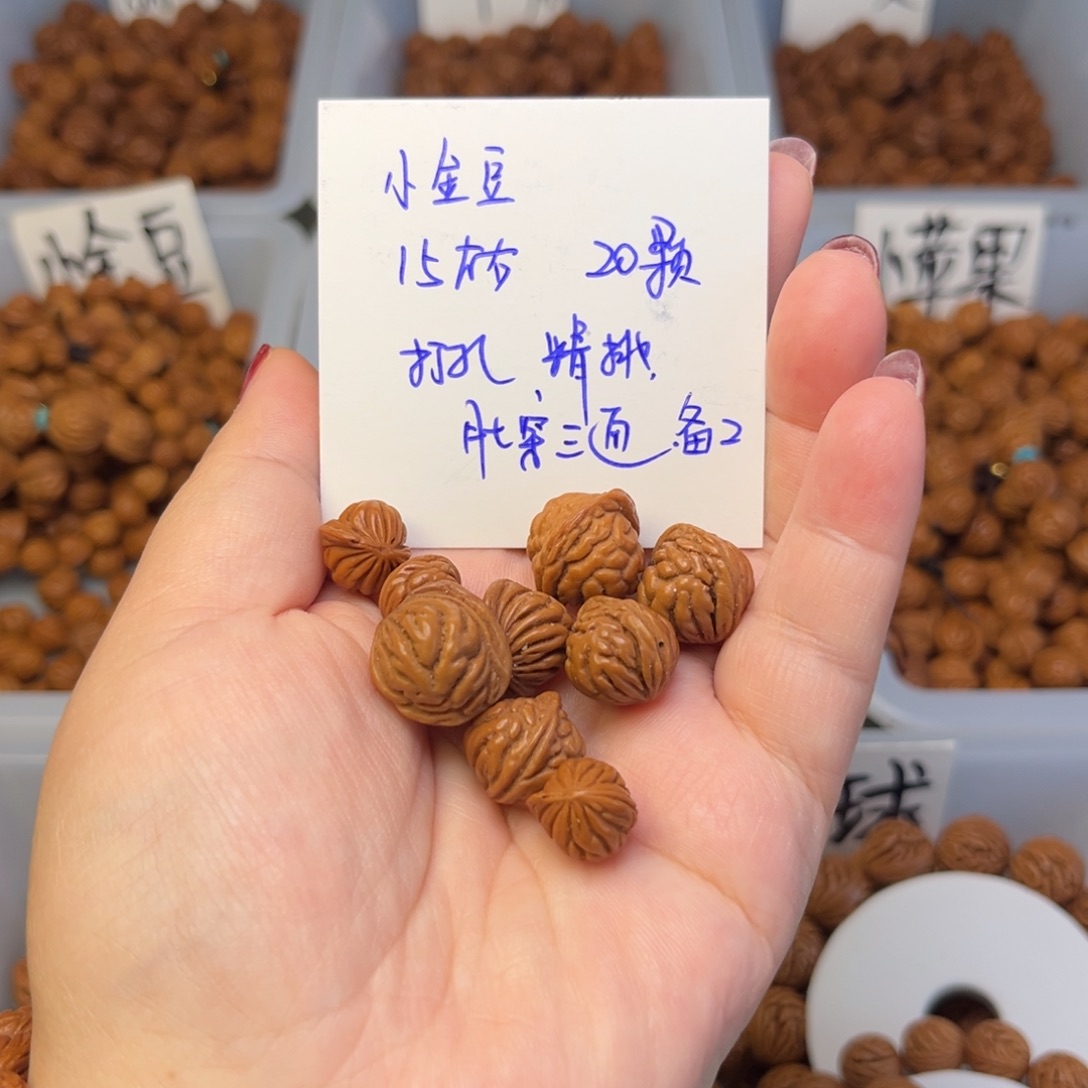 小金豆
15左右 20颗
打孔 精挑
肚穿三通 备2
小金豆
小苹果
球